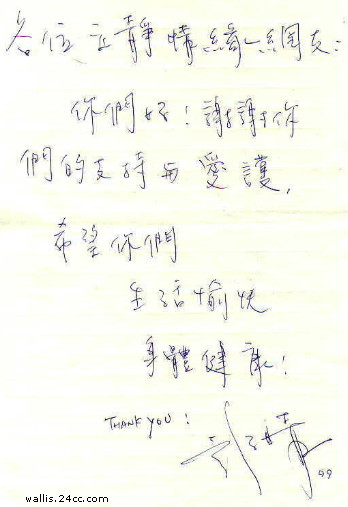 各位文靜情綺網友：
你們好！謝謝你
們的支持與愛護，
希望你們
生活愉快
身體健康！
THANK YOU！
99
wallis.24cc.com